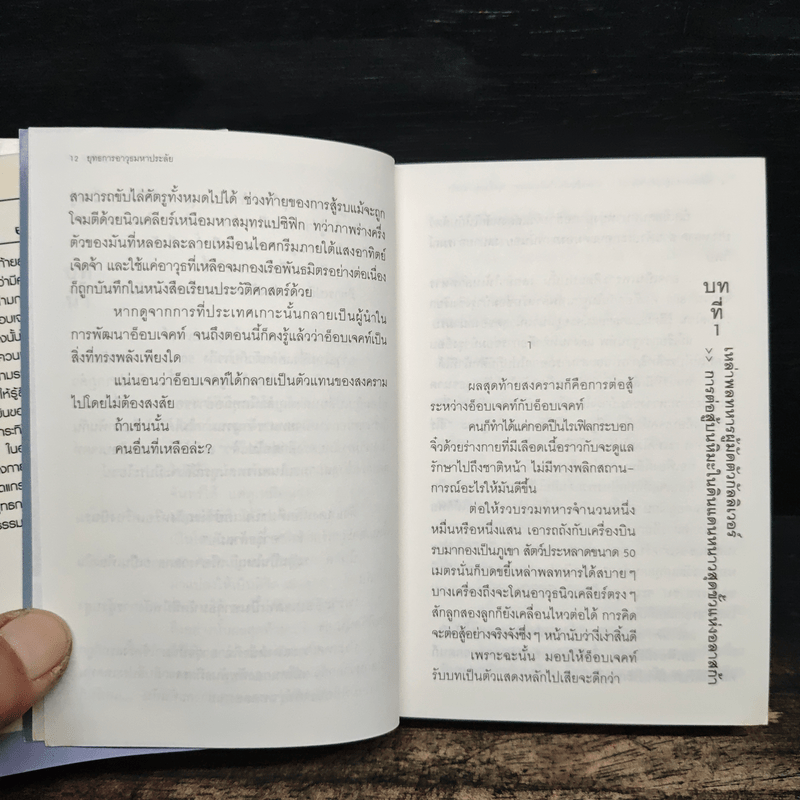 12 ยุทธการอาวุธมหาประลัย
สามารถขับไล่ศัตรูทั้งหมดไปได้ ช่วงท้ายของการสู้รบแม้จะถูก
โจมตีด้วยนิวเคลียร์เหนือมหาสมุทรแปซิฟิก ทว่าภาพร่างครึ่ง
ตัวของมันที่หลอมละลายเหมือนไอศกรีมภายใต้แสงอาทิตย์
เจิดจ้า และใช้แค่อาวุธที่เหลือจมกองเรือพันธมิตรอย่างต่อเนื่อง
ก็ถูกบันทึกในหนังสือเรียนประวัติศาสตร์ด้วย
หากดูจากการที่ประเทศเกาะนั้นกลายเป็นผู้นำใน
การพัฒนาอ็อบเจคท์ จนถึงตอนนี้ก็คงรู้แล้วว่าอ็อบเจคท์เป็น
สิ่งที่ทรงพลังเพียงใด
แน่นอนว่าอ็อบเจคท์ได้กลายเป็นตัวแทนของสงคราม
ไปโดยไม่ต้องสงสัย
ถ้าเช่นนั้น
คนอื่นที่เหลือล่ะ?
บท
ที่
1
เหล่าพลทหารผู้มัดตัวกัลลิเวอร์
>> การต่อสู้บนหิมะในดินแดนหนาวสุดขั้วแห่งอลาสก้า
1
ผลสุดท้ายสงครามก็คือการต่อสู้
ระหว่างอ็อบเจคท์กับอ็อบเจคท์
คนก็ทำได้แค่กอดปืนไรเฟิลกระบอก
จิ๋วด้วยร่างกายที่มีเลือดเนื้อราวกับจะดูแล
รักษาไปถึงชาติหน้า ไม่มีทางพลิกสถาน-
การณ์อะไรให้มันดีขึ้น
ต่อให้รวบรวมทหารจำนวนหนึ่ง
หมื่นหรือหนึ่งแสน เอารถถังกับเครื่องบิน
รบมากองเป็นภูเขา สัตว์ประหลาดขนาด 50
เมตรนั่นก็บดขยี้เหล่าพลทหารได้สบายๆ
บางเครื่องถึงจะโดนอาวุธนิวเคลียร์ตรงๆ
สักลูกสองลูกก็ยังเคลื่อนไหวต่อได้ การคิด
จะต่อสู้อย่างจริงจังซึ่งๆ หน้านับว่างี่เง่าสิ้นดี
เพราะฉะนั้น มอบให้อ็อบเจคท์
รับบทเป็นตัวแสดงหลักไปเสียจะดีกว่า